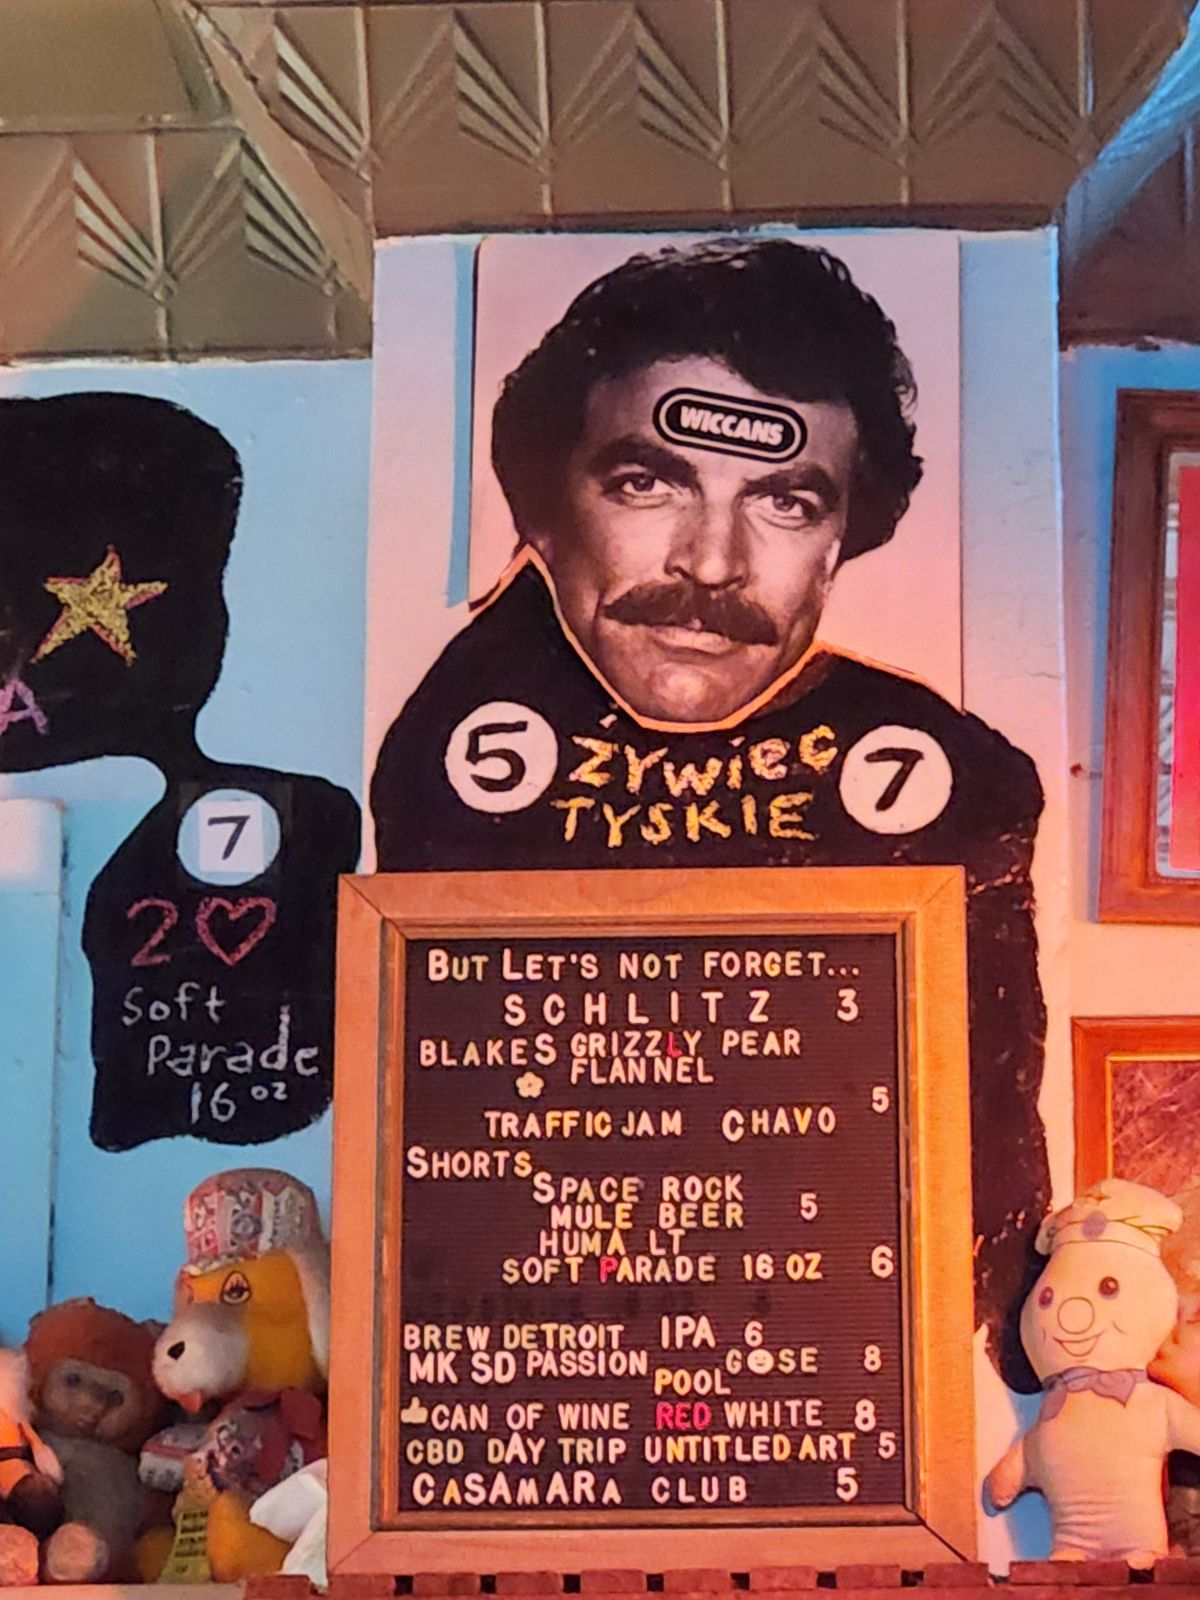 WICCANS
A
5 ŻYwiec 7
TYSKIE
7
2
Soft
Parade
16 oz
BUT LET'S NOT FORGET...
SCHLITZ 3
BLAKES GRIZZLY PEAR
FLANNEL
5
TRAFFIC JAM CHAVO
SHORTS
SPACE ROCK
MULE BEER 5
HUMA LT
SOFT PARADE 16 OZ 6
BREW DETROIT IPA 6
MK SD PASSION GOSE 8
POOL
CAN OF WINE RED WHITE 8
CBD DAY TRIP UNTITLED ART 5
CASAMARA CLUB 5